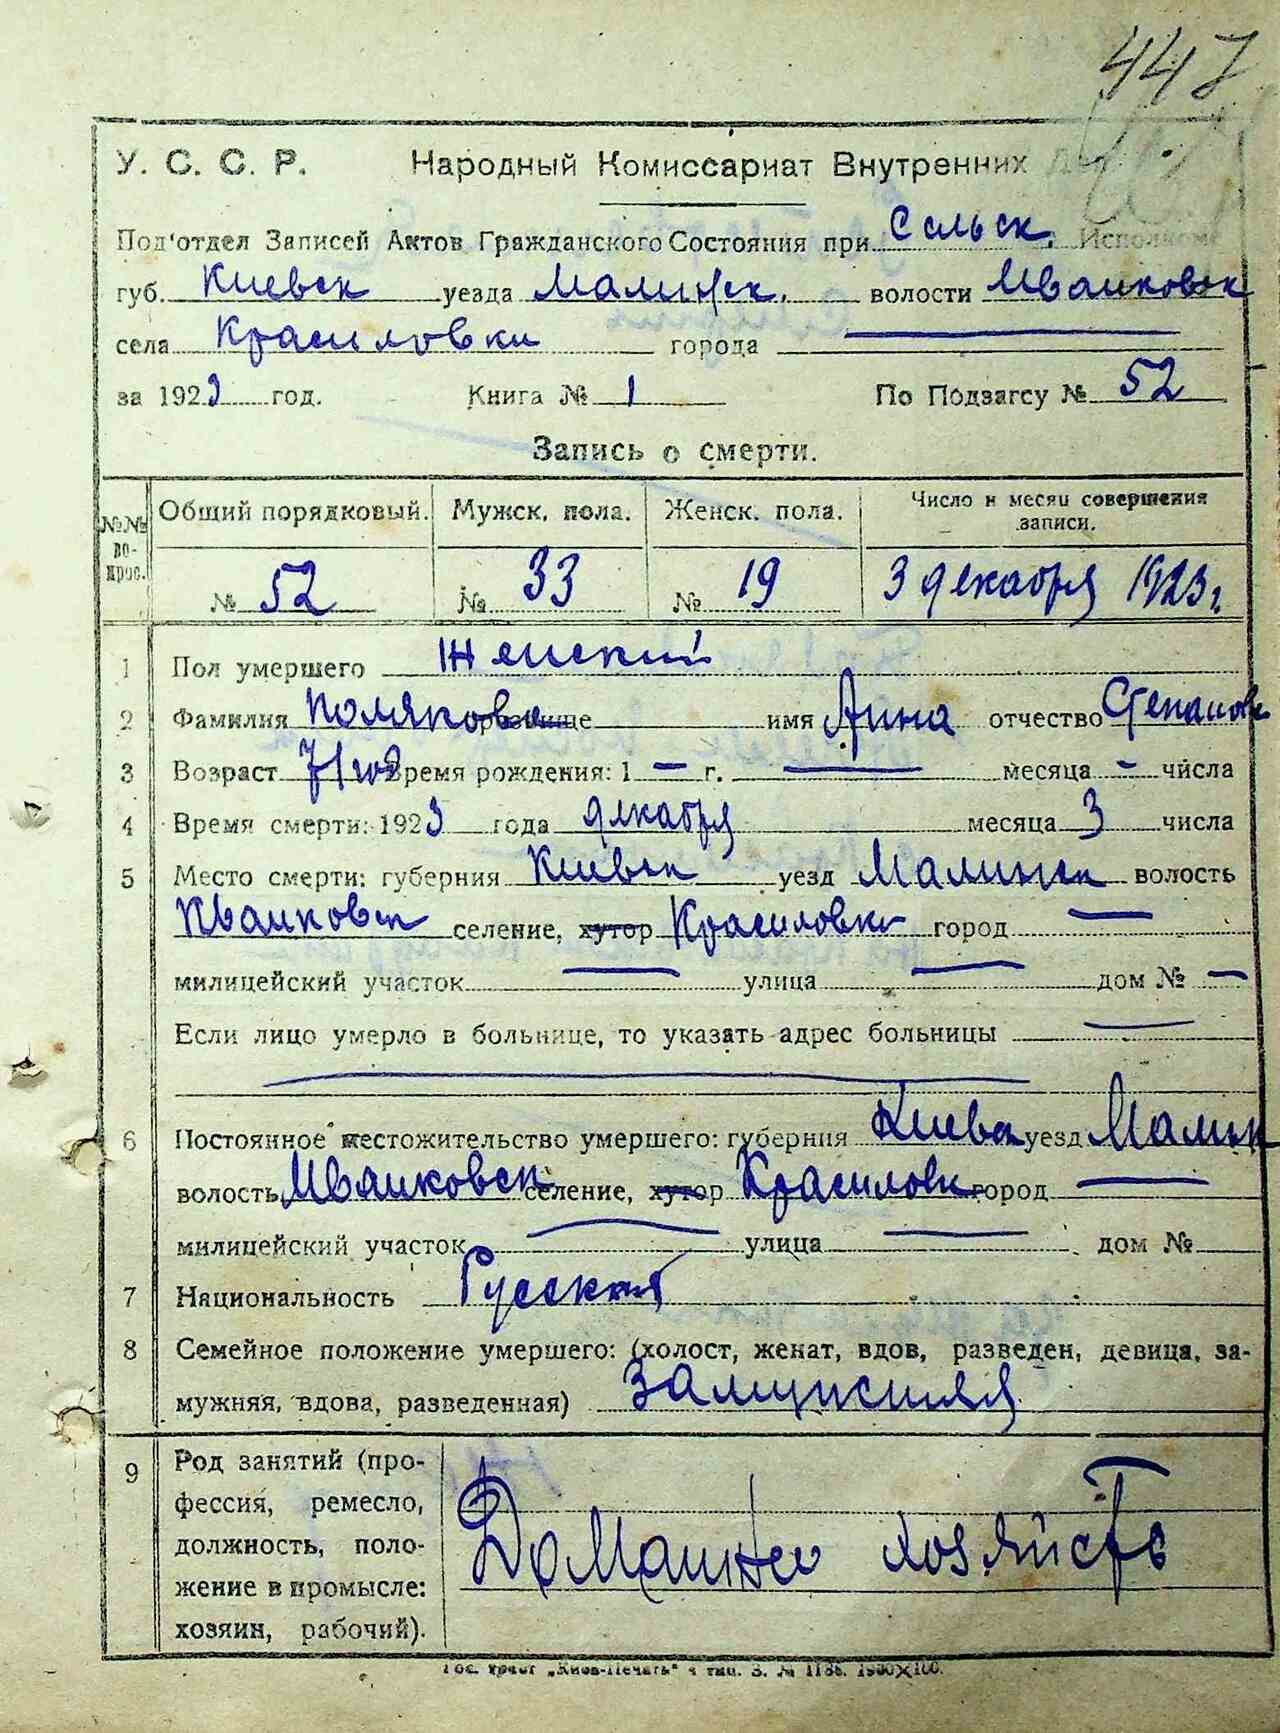 447
У. С. С. Р. Народный Комиссариат Внутренних
Под'отдел Записей Актов Гражданского Состояния при Сельск. Исполкоме
губ. Киевск уезда Малинск. волости Иванковск
села Красиловки города
за 1923 год. Книга № 1 По Подзагсу № 52
Запись о смерти.
№№ вопрос. Общий порядковый. Мужск. пола. Женск. пола. Число и месяц совершения записи.
№ 52 № 33 № 19 3 декабря 1923 г.
1 Пол умершего женский
2 Фамилия Полякова прозвище имя Анна отчество Степанов
3 Возраст 71 год Время рождения: 1 — г. — месяца - числа
4 Время смерти: 1923 года декабря месяца 3 числа
5 Место смерти: губерния Киевск уезд Малинск волость
Иванковск селение, хутор Красиловки город —
милицейский участок — улица — дом № —
Если лицо умерло в больнице, то указать адрес больницы —
6 Постоянное местожительство умершего: губерния Киевск уезд Малинск
волость Иванковск селение, хутор Красиловк город —
милицейский участок — улица — дом №
7 Национальность Русская
8 Семейное положение умершего: (холост, женат, вдов, разведен, девица, за-
мужняя, вдова, разведенная) замужняя
9 Род занятий (про-
фессия, ремесло,
должность, поло-
жение в промысле:
хозяин, рабочий).
Домашнее хозяйство
Гос. трест „Киев-Печать" 4 тип. З. № 1186. 1900×100.